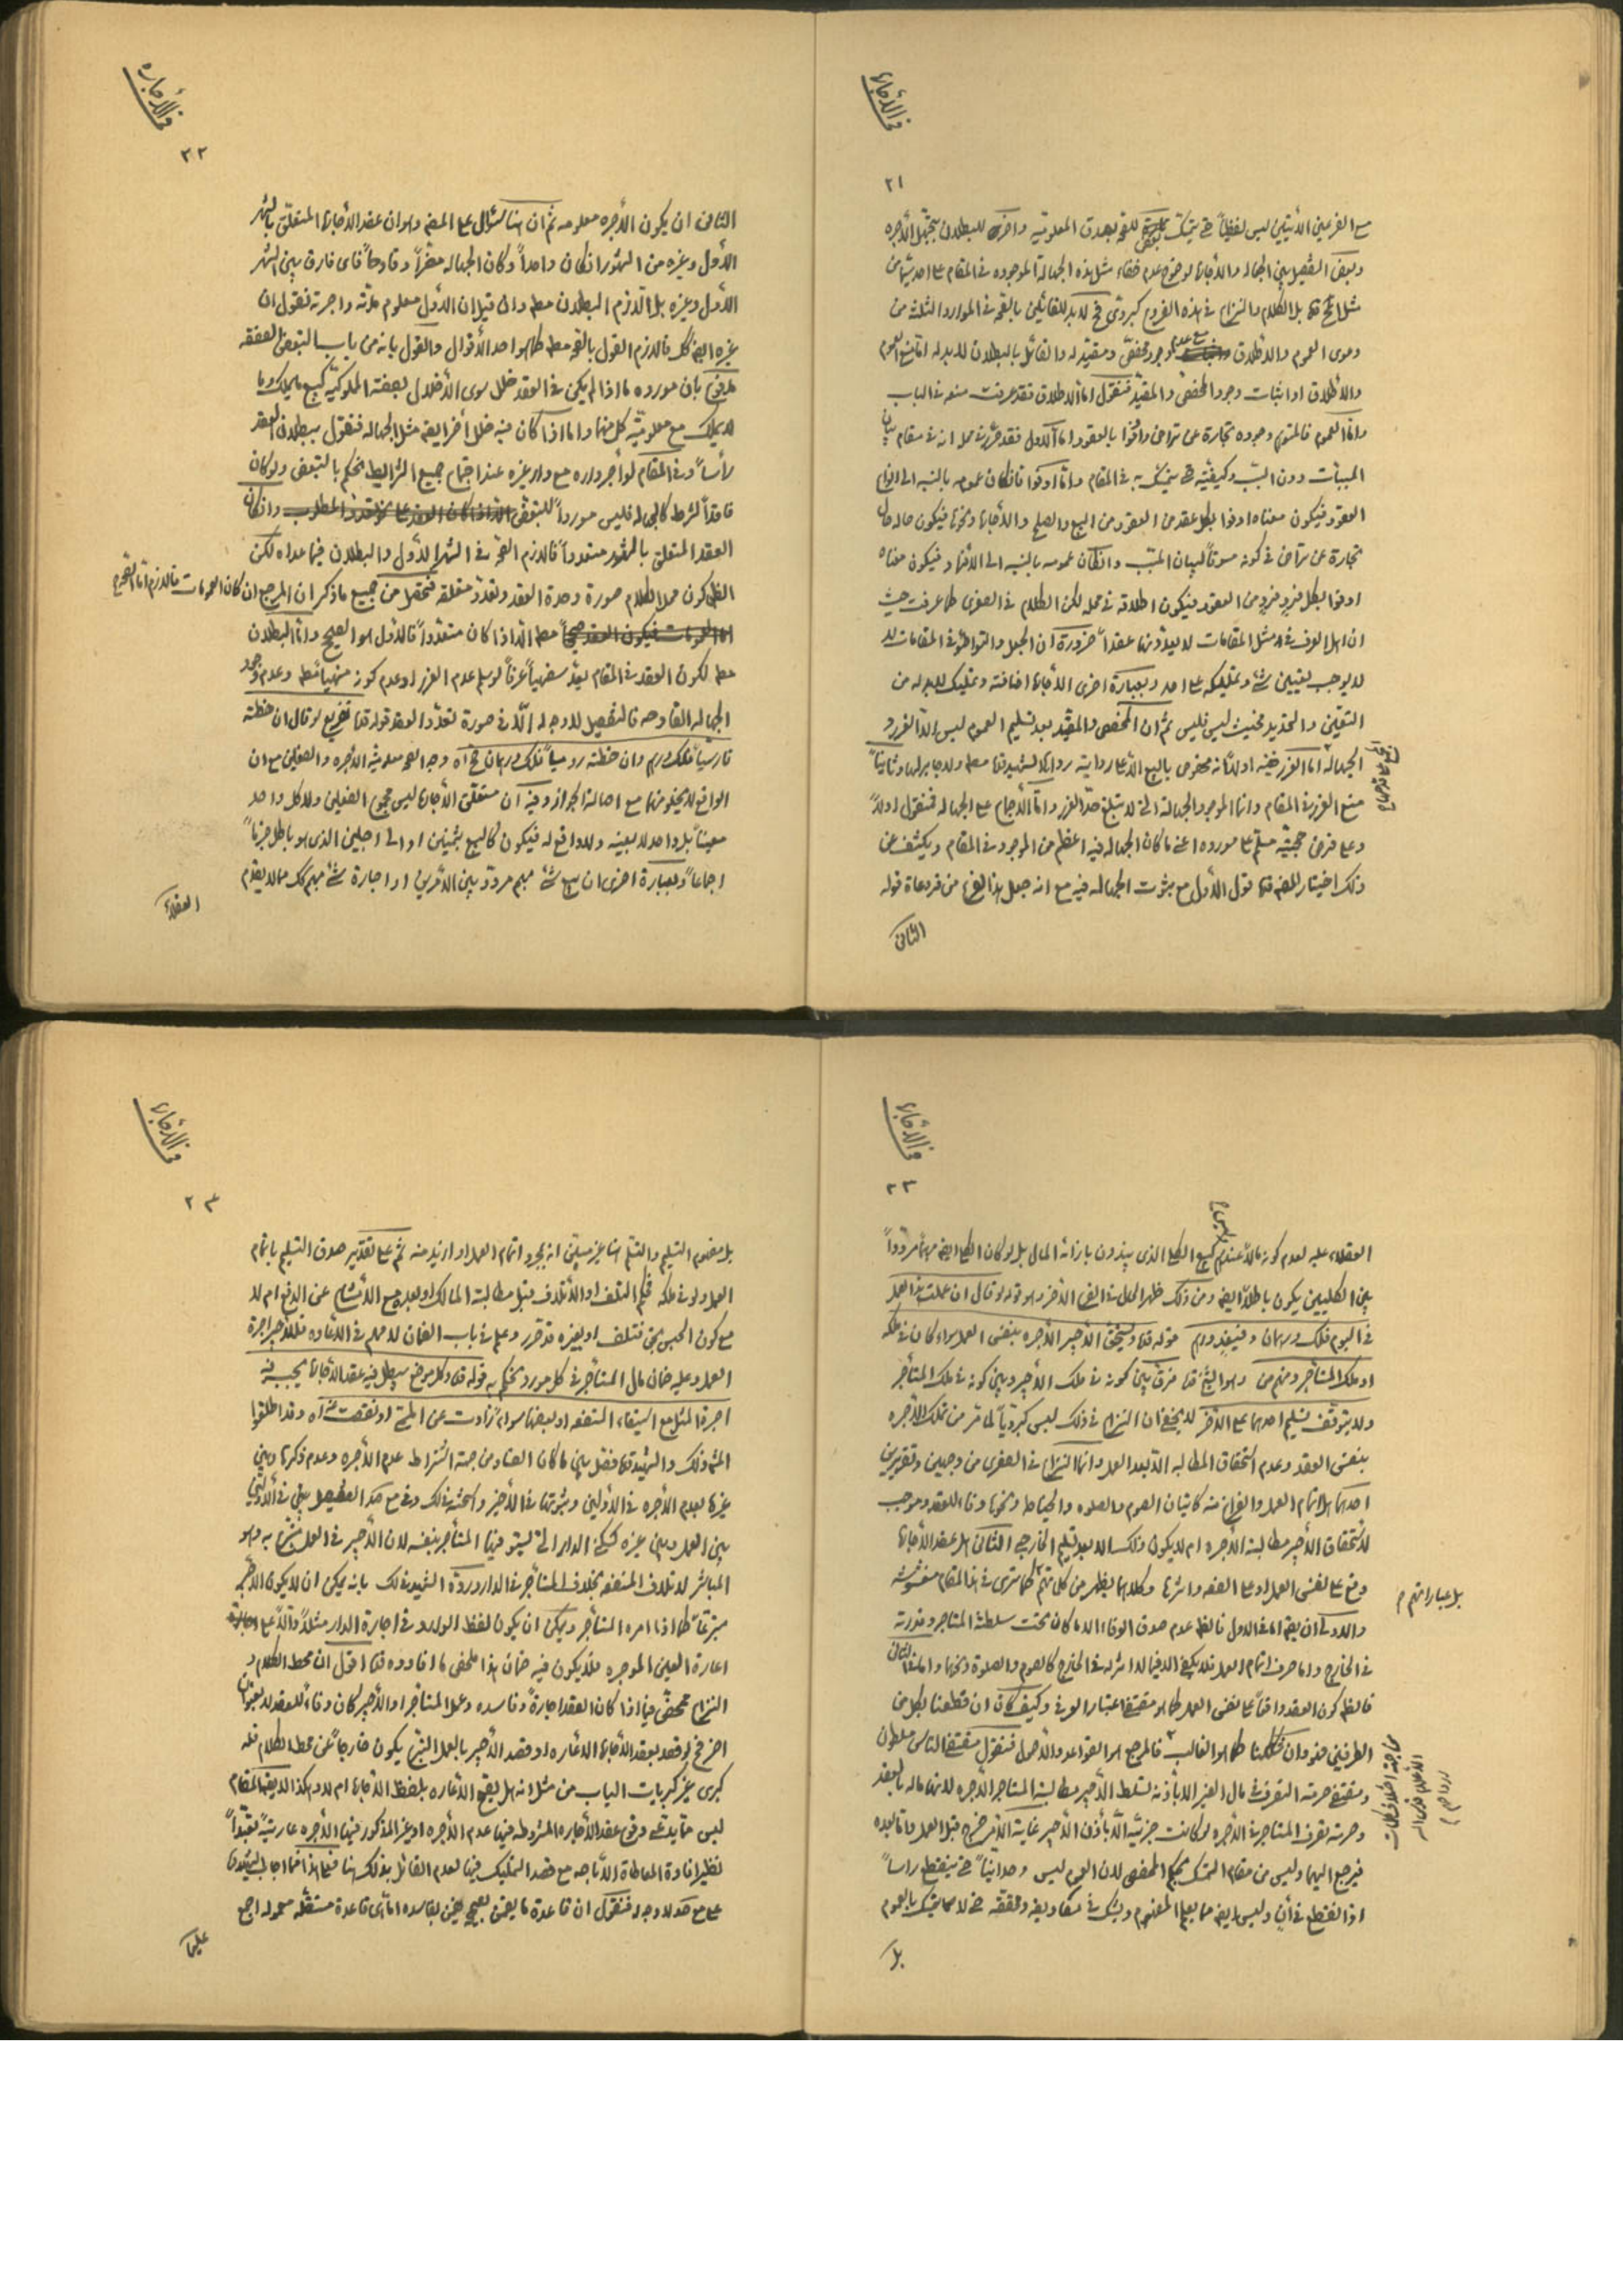 في الأجاره
٢١
مع الفرضين الأتيين ليس لفظياً حتى يتمسّك للصحّه بصدق المعلوميّه واخرى للبطلان بتجهّل الأجره
وبعض التفصيل بين الجهاله والأجاره لوضوح عدم خفاء مثل هذه الجهالة الموجوده في المقام على احد
بل الكلام والنزاع في هذه الفروع كبروىّ فح لابد للقائلين بالصحّه في الموارد الثلثة من
دعوى العموم والاطلاق وجود مخصّص ومقيّد له والقائل بالبطلان لابد له امّا منع العموم
والأطلاق او اثبات وجود المخصّص والمقيّد فنقول امّا الاطلاق فقد عرفت منعه في الباب
وامّا العموم فالمتوهم وجوده تجارة عن تراض واوفوا بالعقود امّا الاول فقد حرّر في محله انه في مقام بيان
المسببات دون السبب وكيفيّته حتى يتمسّك به في المقام وامّا اوفوا فان كان عمومه بالنسبه الى انواع
العقود فيكون معناه اوفوا بكل عقد من العقود من البيع والصلح والأجاره ونحوها فيكون حاله حال
تجارة عن تراض في كونه مسوقاً لبيان المسبب وان كان عمومه بالنسبه الى الافراد فيكون معناه
اوفوا بكل فردٍ فردٍ من العقود فيكون اطلاقه في محله لكن الكلام في الصغرى كما عرفت حيث
ان اهل العرف في مثل المقامات لا يعدّونها عقداً ضرورة ان الجعل والتواطؤ في المقامات لا
لا يوجب تعيين شئ وتمليكه على احد وبعبارة اخرى الأجاره اضافة وتمليك لابد له من
التعيّن والتحديد فحيث ليس فليس ثم ان المخصص والمقيد بعد تسليم العموم ليس الا الغرر و
الجهاله امّا الغرر ففيه اولاً انه مخصوص بالبيع الا على رواية رواها الشهيد قدّه ولا جابر لها وثانياً
منع الغرر في المقام وانما الموجود الجهالة التي لا تبلغ حدّ الغرر وامّا الأجماع على الجهاله فنقول اولاً
وعلى فرض حجيّته مسلّم على مورده اعنى ما كان الجهاله فيه اعظم من الموجود في المقام ويكشف عن
ذلك اختيار المصنف قدّه قول الاول مع ثبوت الجهاله فيه مع انه جعل هذا الفرع من فروعاة قوله
الثانى
في الأجاره
٢٢
الثانى ان يكون الأجره معلومه ثم ان هنا سؤال على المصنف وهو ان عقد الأجارة المتعلّق بالشهر
الاول وغيره من الشهور ان كان واحداً وكان الجهاله مضرّاً وقادحاً فاى فارق بين الشهر
الأول وغيره بل اللازم البطلان مطلقا وان قيل ان الأول معلوم مدّته واجرته نقول ان
غيره ايضا كك فاللازم القول بالصحّه مطلقا كما هو احد الأقوال والقول بانه من باب التبعض الصفقه
مدفوع بان مورده ما اذا لم يكن في العقد خلل سوى الأخلال بصفة المملوكيّه كبيع ما يملك وما
لا يملك مع معلوميّه كل منهما واما اذا كان فيه خلل أخر ايضا مثل الجهاله فنقول ببطلان العقد
رأساً وفي المقام لو أجر داره مع دار غيره عند اجتماع جميع الشرايط يحكم بالتبعض ولو كان
فاقداً لشرط كالجهاله فليس مورداً للتبعض وان كان
العقد المتعلق بالشهور متعدداً فاللازم الصحّه في الشهر الأول والبطلان فيما عداه لكن
الظاهر كون محل الكلام صورة وحدة العقد وتعدّد متعلقه فتحصل من جميع ماذكر ان المرجع ان كان العمومات فاللازم امّا الصحّه
مطلقا الا اذا كان متعدّداً فالأول هو الصحيح وامّا البطلان
مطلقا لكون العقد في المقام يعدّ سفهياً عرفاً لو سلم عدم الغرر او عدم كونه منهياً مطلقا وعدم وجود
الجهاله القادحه فالتفصيل لا وجه له الّا في صورة تعدّد العقد قوله قدّه تفريع لو قال ان خطته
فارسيّاً فلك درهم وان خطته روميّاً فلك درهمان صحّ اه وجه الصحّه معلوميّة الأجره والفعلين مع ان
الواقع لا يخلو منهما مع اصالة الجواز وفيه ان متعلّق الأجاره ليس مجموع الفعلين ولا كل واحد
معيناً بل واحد لا بعينه ولا واقع له فيكون كالبيع بثمنين او الى اجلين الذى هو باطل جزماً
اجماعاً وبعبارة اخرى ان بيع شئ مبهم مردّد بين الأمرين او اجارة شئ مبهم كك مما لا يقدم
العقلاء
في الأجاره
٢٣
العقلاء عليه لعدم كونه مالاً عندهم كبيع الكلى الذى يبذلون بازائه المال بل لو كان الكلى ايضا مبهماً مردّداً
بين الكليين يكون باطلاً ايضا ومن ذلك ظهر الحال في الفرع الأخر وهو قوله لو قال ان عملت هذا العمل
في اليوم فلك درهمان وفي غدٍ درهم قوله قدّه ويستحق الأجير الأجره بنفس العمل سواء كان في ملكه
او ملك المستأجر ومنهم من وهو الشيخ قدّه فرّق بين كونه في ملك الأجير وبين كونه في ملك المستأجر
ولا يتوقف تسليم احدهما على الأخر لا يخفى ان النزاع في ذلك ليس كبرويّاً لما تقرّر من تملك الأجره
بنفس العقد وعدم استحقاق المطالبه الا بعد العمل وانما النزاع في الصغرى من وجهين وتقريرين
احدهما هل اتمام العمل والفراغ منه كاتيان الصوم والصلوه والخياطه ونحوها وفاء للعقد وموجب
لاستحقاق الأجير مطالبة الأجره ام لا يكون ذلك الا بعد تسليم الخارجى الثانى هل عقد الأجاره
وقع على نفس العمل او على الصفه واثرها وكلاهما يظهر من كلماتهم كما ترى في هذا المقام مغشوشه
بل عباراتهم م
والاولى ان يقال امّا في الاول فالظاهر عدم صدق الوفاء الا ما كان تحت سلطنة المستأجر وقدرته
في الخارج واما صرف اتمام العمل فلا يكفى الا فيما لا اثر له في الخارج كالصوم والصلوة ونحوها وامّا في الثانى
فالظاهر كون العقد واقعاً على نفس العمل كما هو مقتضى اعتبار العرف وكيف كان ان قطعنا بكل من
الطرفين فهو وان شككنا كما هو الغالب فالمرجع هو القواعد والأصول فنقول مقتضى الناس مسلطون
ومقتضى حرمة التصرف في مال الغير الا باذنه تسلط الأجير مطالبة المستاجر الأجره لانها ماله بالعقد
وحرمة تصرف المستاجر في الأجره لو كانت جزئيّه الّا بأذن الأجير غاية الأمر خرج قبل العمل وامّا بعده
فيرجع اليهما وليس من مقام التمسّك بحكم المخصص لان العموم ليس وحدانيّاً حتى ينقطع راساً
اذا انقطع في أنٍ وليس ايضا مما يعلم المفهوم ويشك في مصاديقه ومحققه حتى لا يتمسّك بالعموم
بل
في الأجاره
٢٤
بل مفهوم التسليم والتسلّم هنا غير مبيّن انه بمجرد اتمام العمل او ازيد منه ثم على تقدير صدق التسليم باتمام
العمل ولو في ملكه فحكم التلف او الأتلاف قبل مطالبة المالك او بعده مع الأمتناع عن الدفع ام لا
مع كون الحبس بحقّ فتلف او بغيره قد تقرر وعلم في باب الضمان لا مهم في الأعاده فللأجير اجرة
العمل وعليه ضمان مال المستأجر في كل مورد يحكم به قوله قدّه وكل موضع يبطل فيه عقد الأجاره يجب فيه
اجرة المثل مع استيفاء المنفعه او بعضها سواء زادت عن المسمّى او نقصت عنه اه وقد اطلقوا
المشهور ذلك والشهيد قدّه فصّل بين ما كان الفساد من جهة اشتراط عدم الأجره وعدم ذكرها وبين
غيرها بعدم الأجره في الأولين وثبوتها في الأخير
بين العمل وبين غيره كسكنى الدار التى يستوفيها المستأجر بنفسه لان الأجير في العمل متبرّع به وهو
المباشر لاتلاف المنفعه بخلاف المستأجر في الدار وردّه الشهيد بانه يمكن ان لا يكون الأجير
متبرّعاً كما اذا امره المستأجر ويمكن ان يكون لفظ الوارد في اجارة الدار مثلاً دالّاً على
اعارة العين الموجره فلا يكون فيه ضمان هذا ملخص ما افادوه قدّه اقول ان محط الكلام و
النزاع محصّل فيما اذا كان العقد اجارةً وفاسده وعمل المستأجر او الأجير كان وفاء للعقد لا بعنوان
اخر فح لو قصد بعقد الأجاره الأعاره او قصد الأجير بالعمل التبرّع يكون خارجاً عن محط الكلام فله
كبرى غير كبريات الباب من مثل انه هل يقع الأعاره بلفظ الأجاره ام لا وهكذا
ليس مما يدّعى وقوع عقد الأجاره المشروطه فيها عدم الأجره او غير المذكور فيها الأجره عارية تعبّداً
نظير افادة المعاطاة الأباحه مع قصد التمليك فيها لعدم القائل بذلك هنا
فنقول ان قاعدة ما يضمن بصحيحه يضمن بفاسده امّا هى قاعدة مستقلّه معموله اجمع
عليها